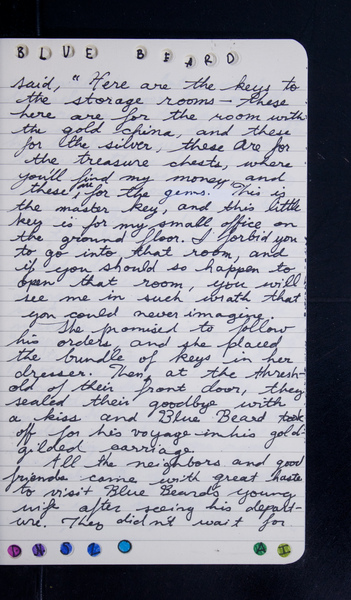 BLUE BEARD
said, "Here are the keys to
the storage rooms — these
here are for the room with
the gold china, and these
for the silver, these are for
the treasure chests, where
you'll find my money and
these are for the gems. This is
the master key, and this little
key is for my small office on
the ground floor. I forbid you
to go into that room, and
if you should so happen to
open that room, you will
see me in such wrath that
you could never imagine.
She promised to follow
his orders, and she placed
the bundle of keys in her
dresser. Then, at the thresh-
old of their front door, they
sealed their goodbye with
a kiss and Blue Beard took
off for his voyage in his gold-
gilded carriage.
All the neighbors and good
friends came with great haste
to visit Blue Beard's young
wife after seeing his depart-
ure. They didn't wait for